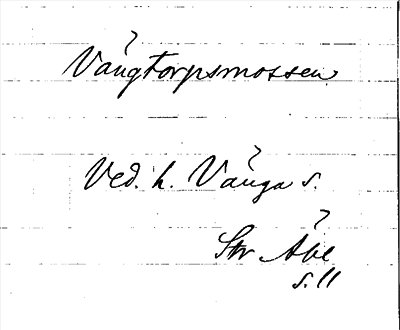 Vångtorpsmossen
Ved. h. Vånga s.
Str Åbe
s. 11